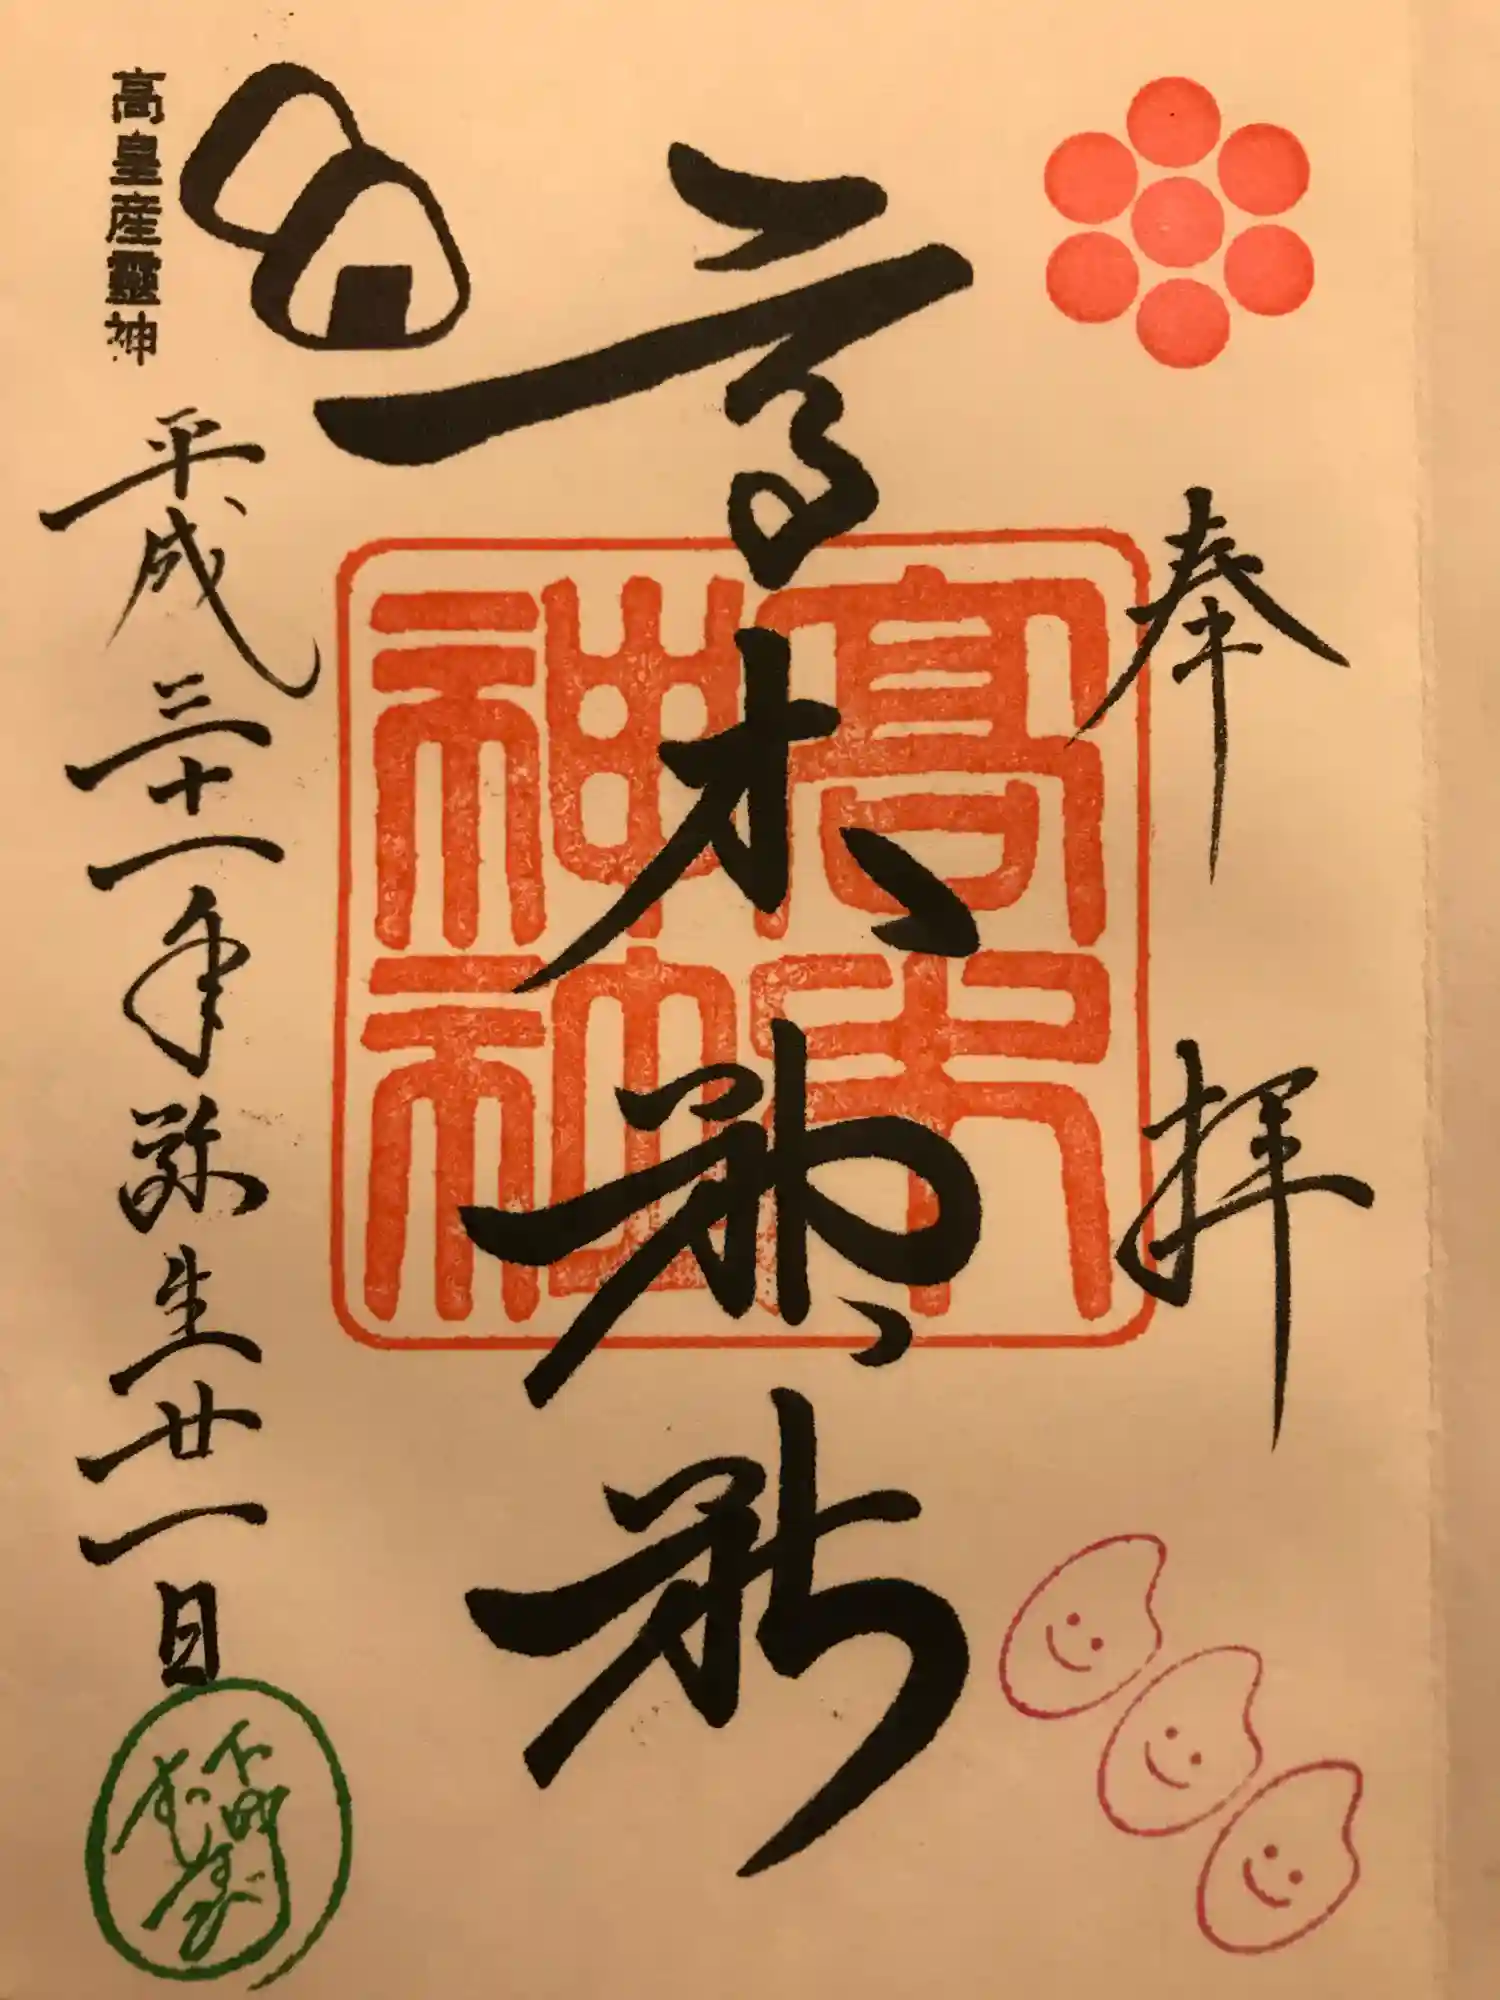 奉拝
高木神社
高木神社
高皇産靈神
平成三十一年弥生廿一日